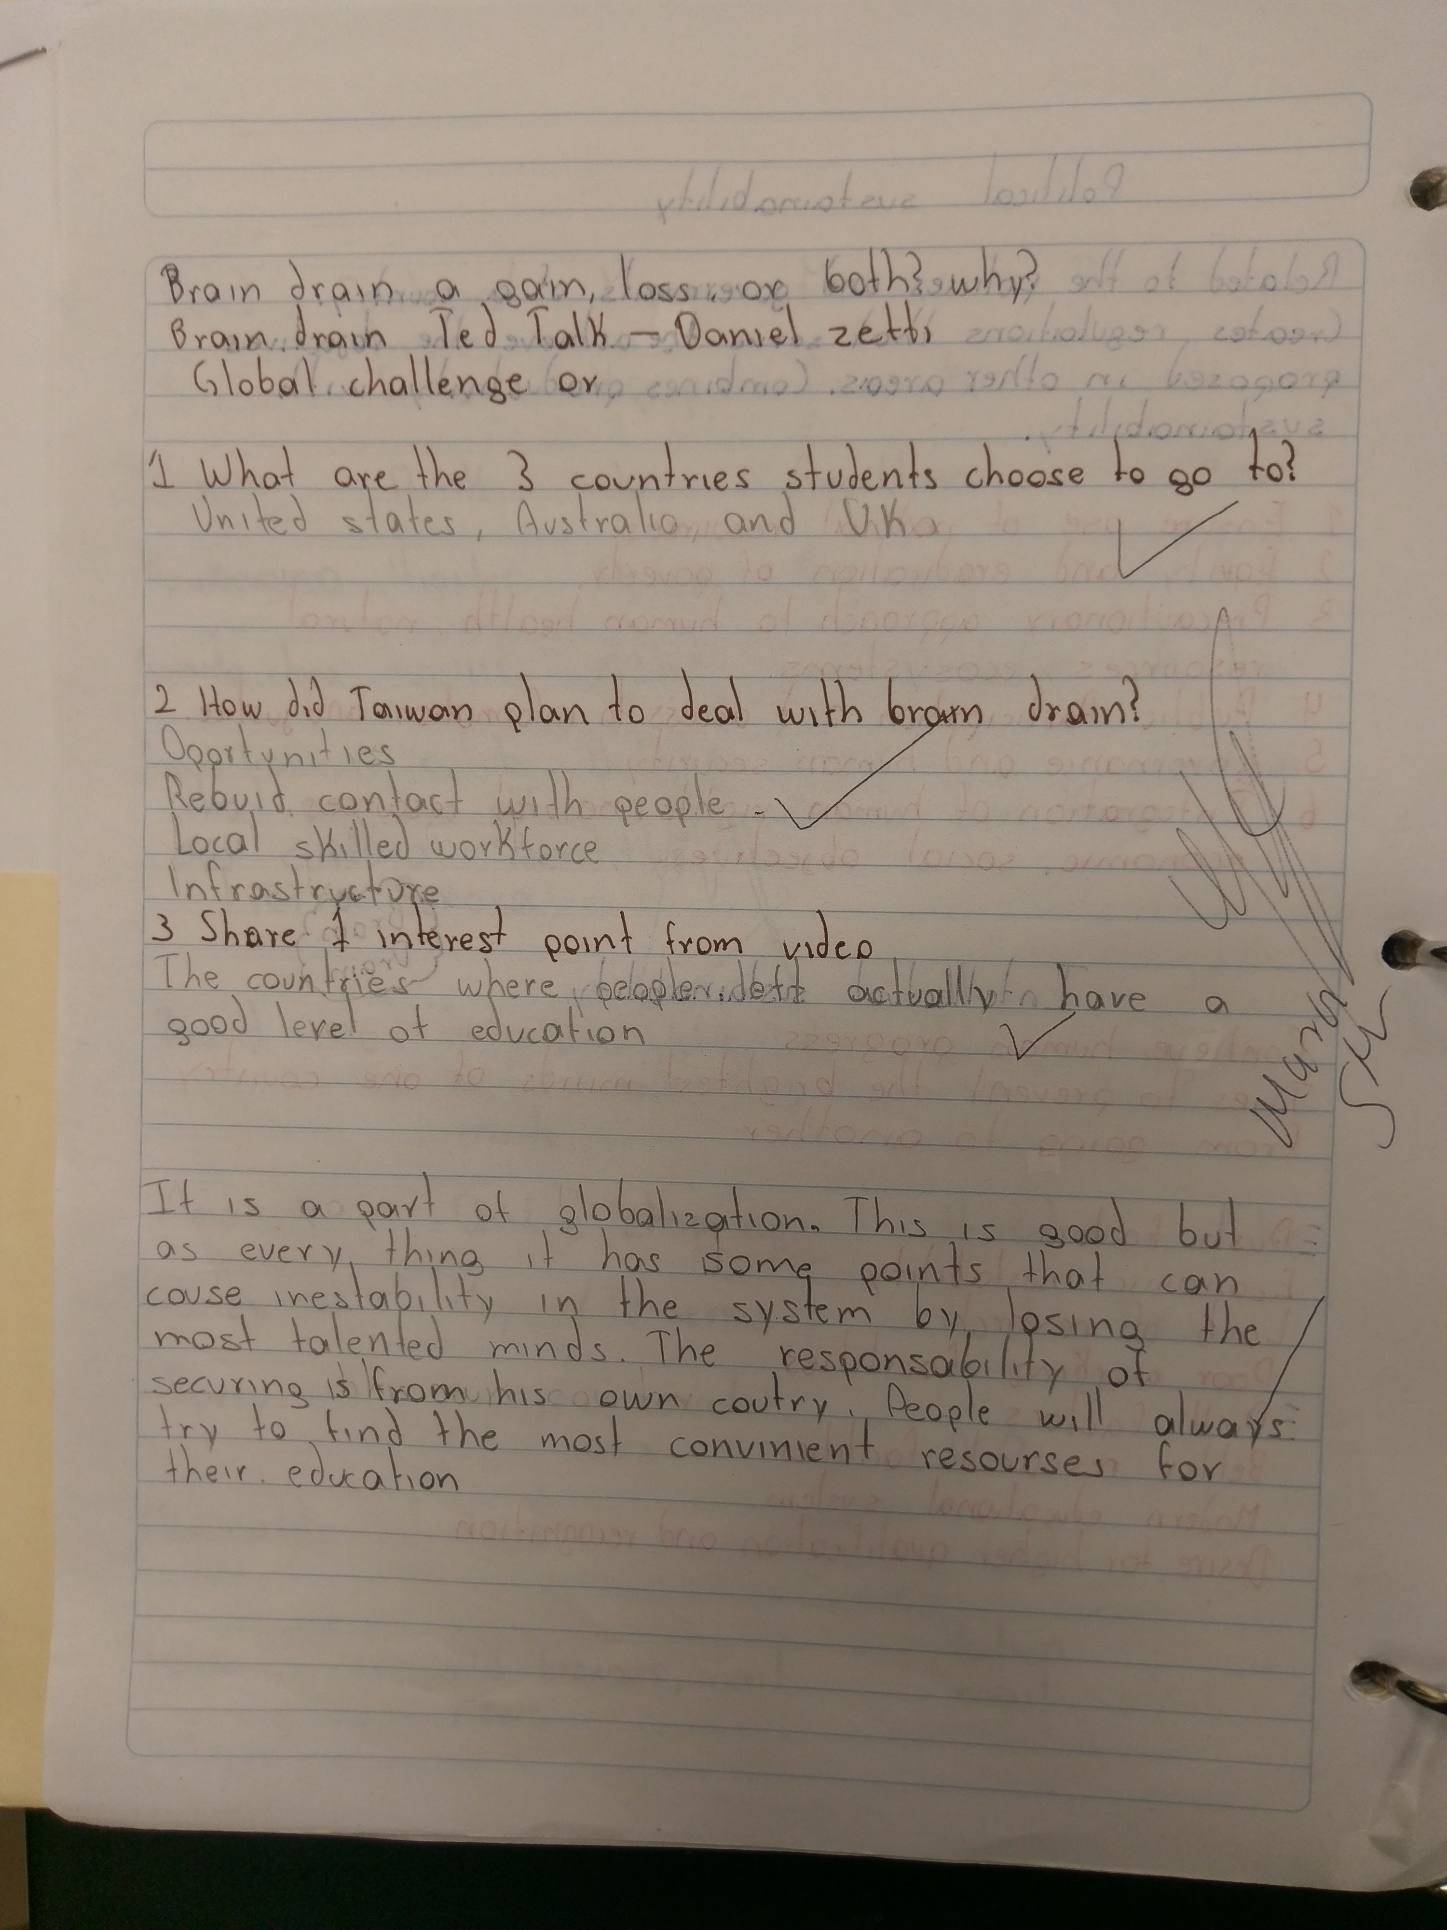 Brain drain a gain, loss, or both? why?
Brain drain Ted Talk - Daniel zetti
Global challenge or
1 What are the 3 countries students choose to go to?
United states, Australia and UK
2 How did Taiwan plan to deal with brain drain?
Oportunities
Rebuid contact with people
Local skilled workforce
Infrastructure
3 Share 1 interest point from video
The countries where people left actually have a
good level of education
It is a part of globalization. This is good but
as every thing it has some points that can
couse inestability in the system by losing the
most talented minds. The responsability of
securing is from his own coutry. People will always
try to find the most convinient resourses for
their education